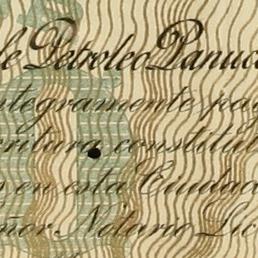 de Petroleo Panuco
ntegramente pag
critura constitut
en esta Ciudad
ñor Notario Lic